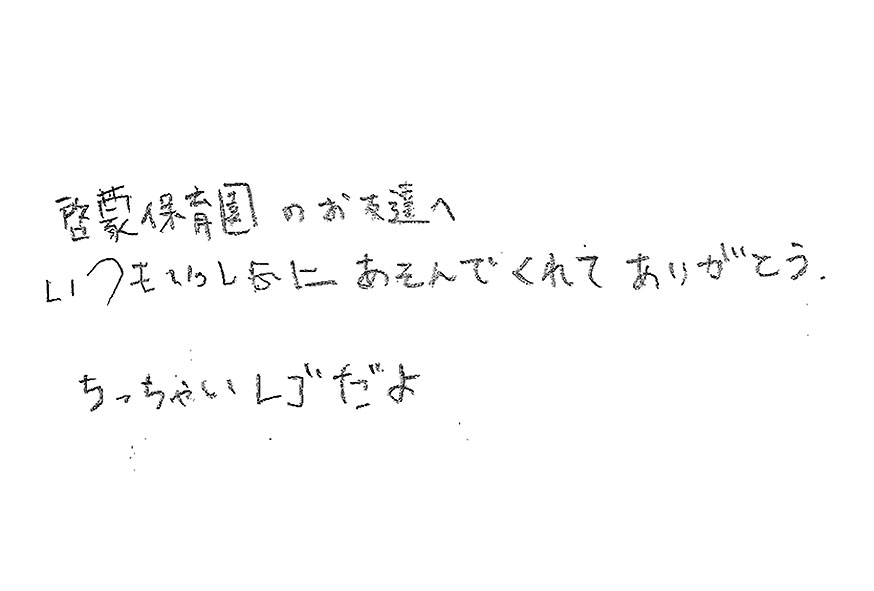 啓蒙保育園のお友達へ
いつもいっしょにあそんでくれてありがとう.
ちっちゃいレゴだよ